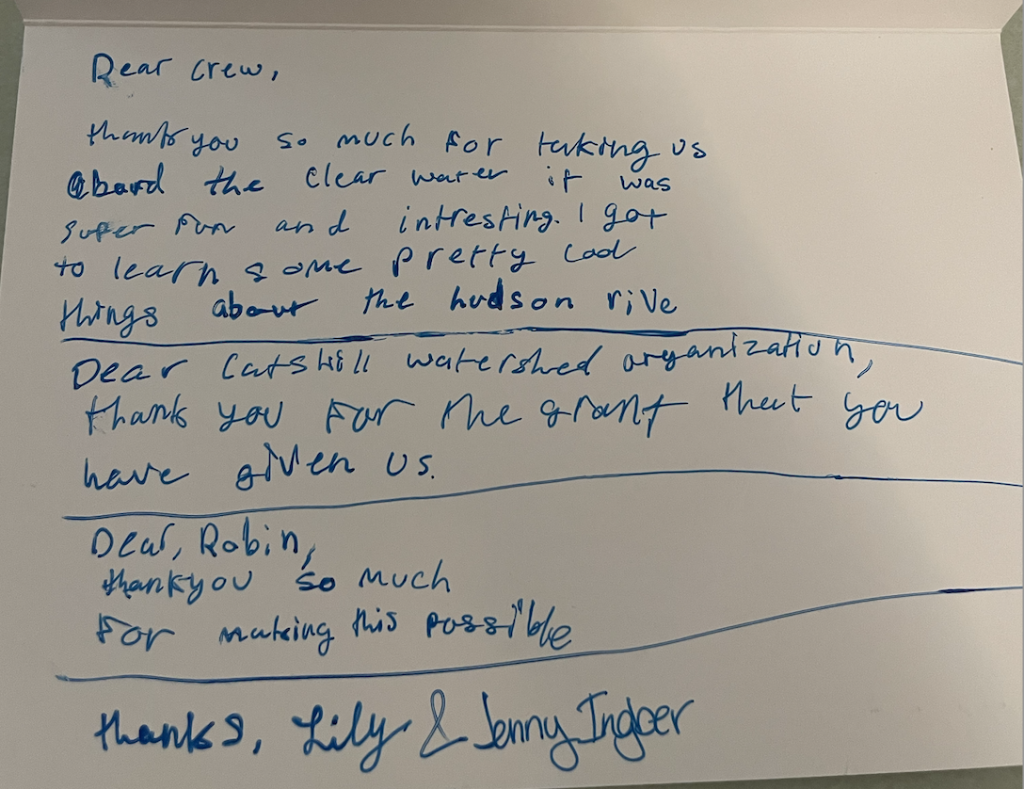 Dear crew,
thank you so much for taking us
abord the clear water it was
super fun and intresting. I got
to learn some pretty cool
things about the hudson rive
Dear Catskill watershed organization,
thank you for the grant that you
have given us.
Dear, Robin,
thankyou so much
for making this possible
thanks, Lily & Jenny Ingber